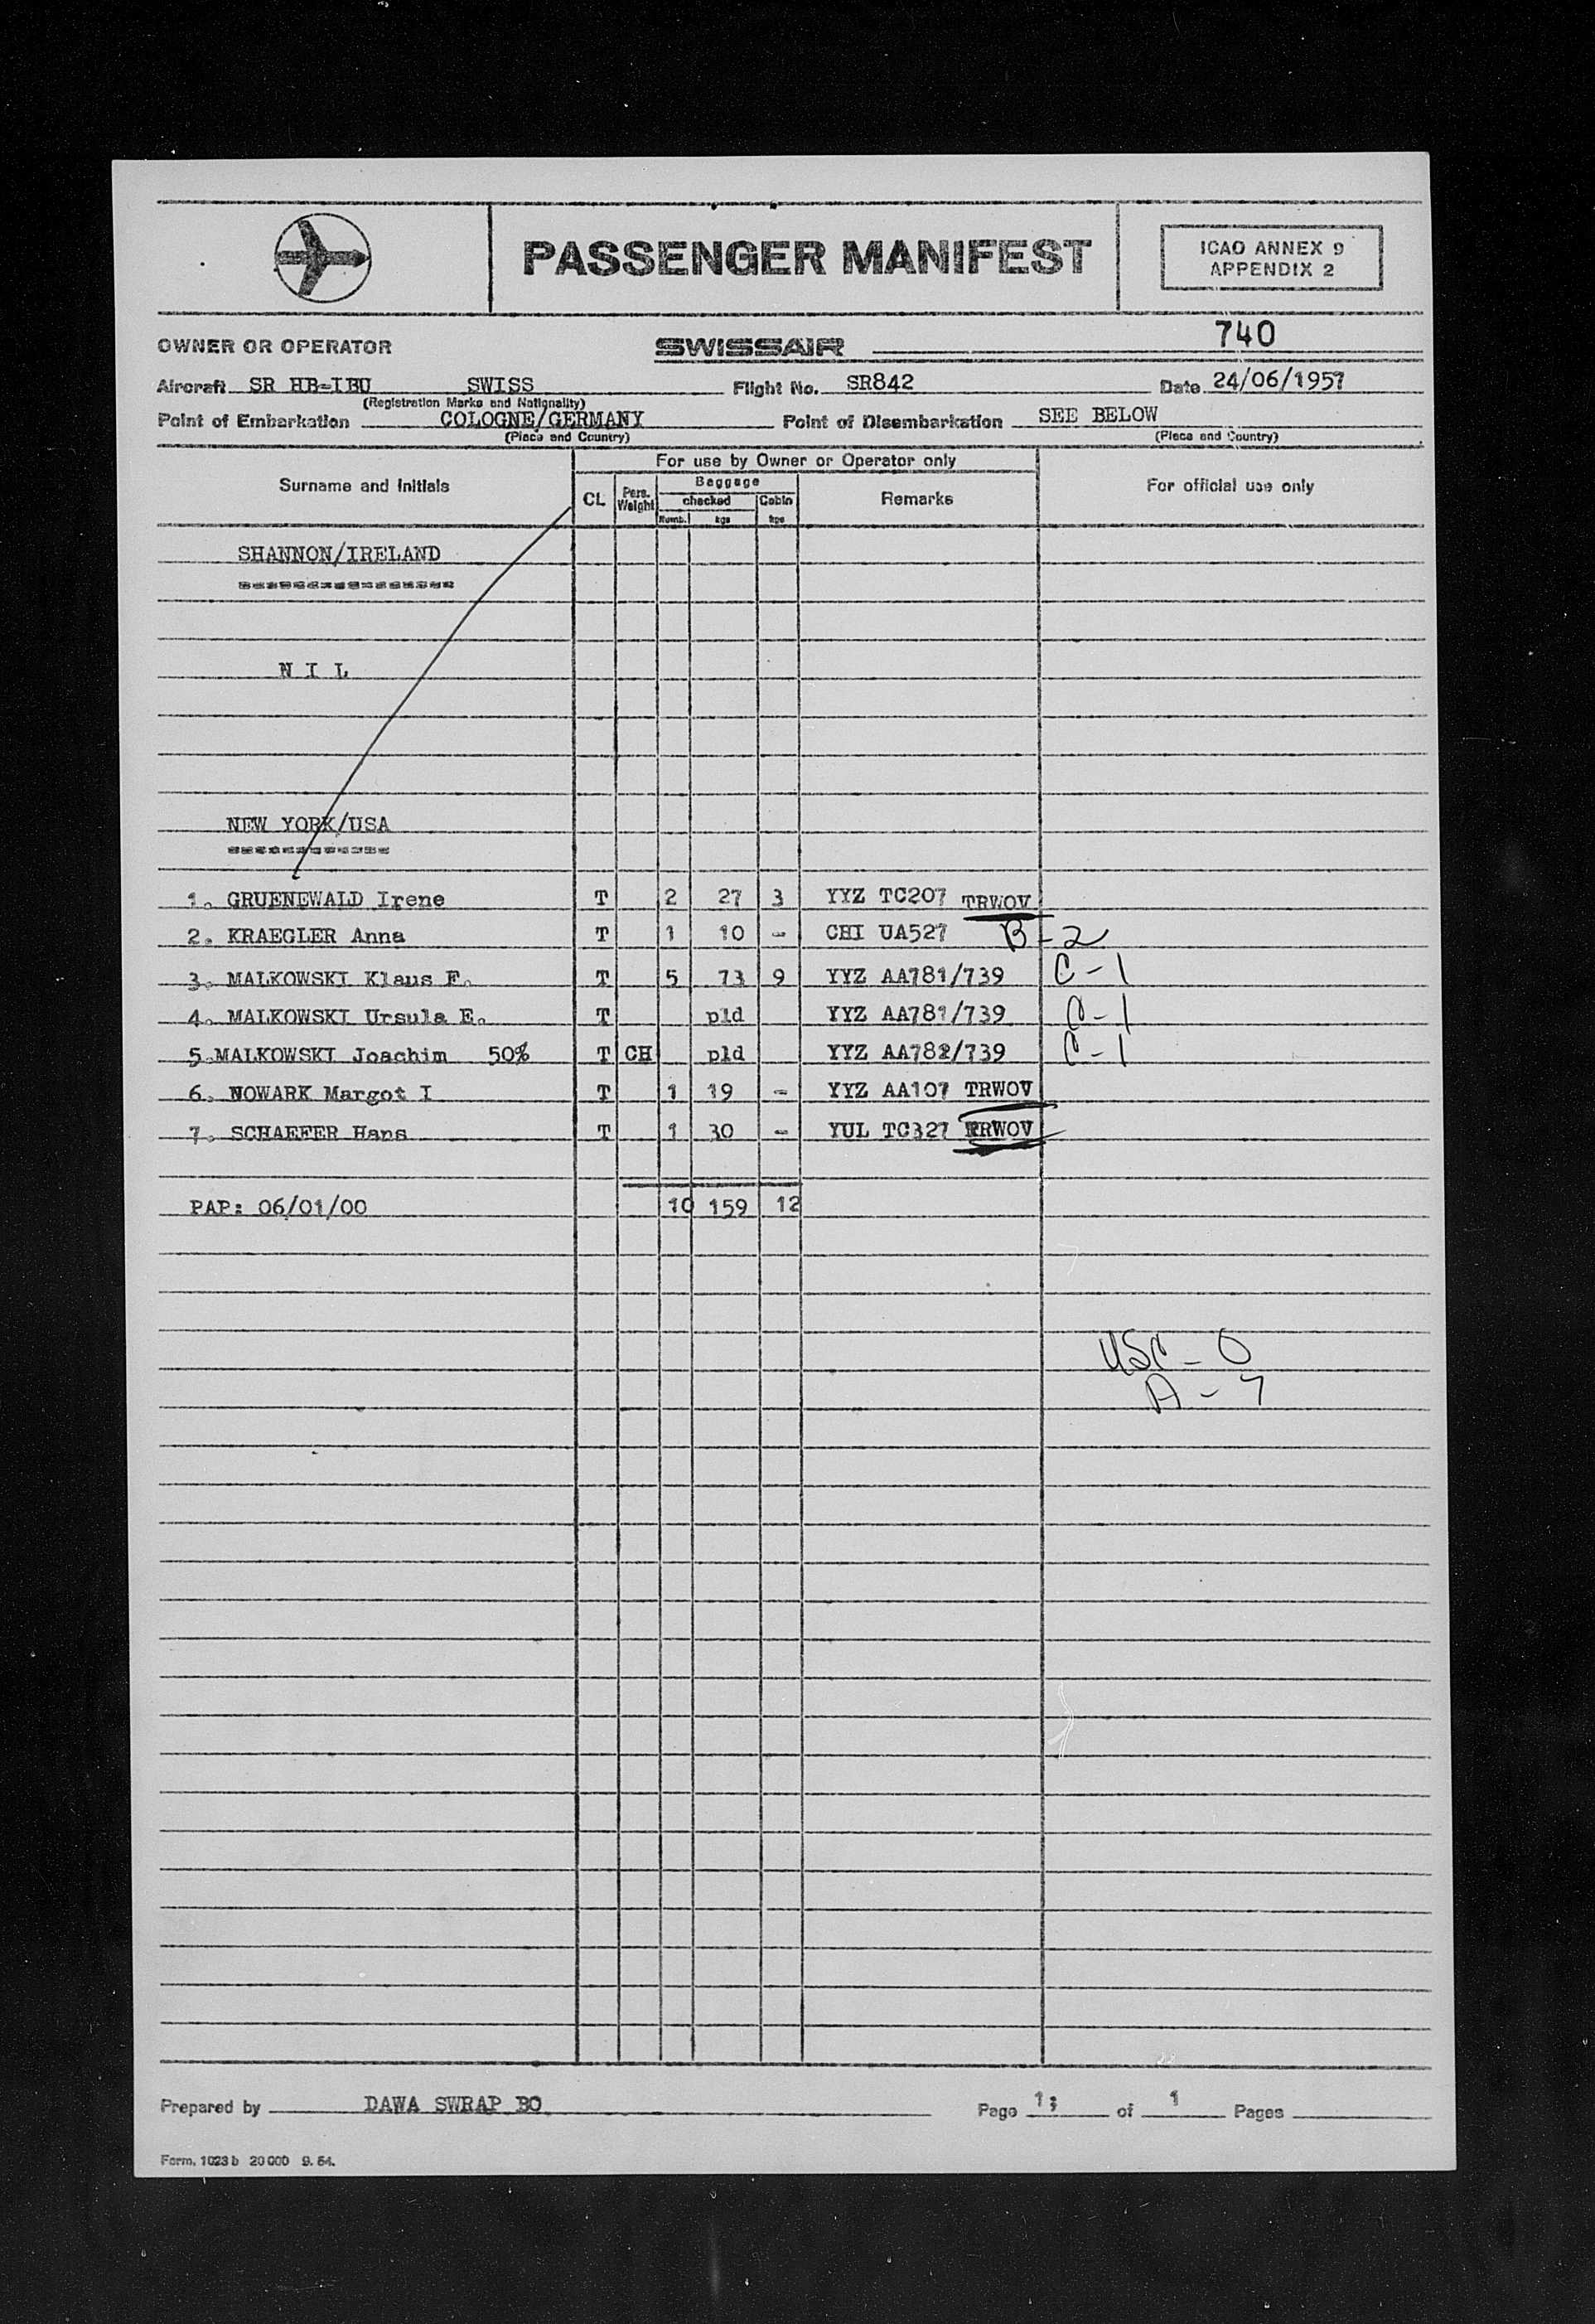 PASSENGER MANIFEST
ICAO ANNEX 9
APPENDIX 2
740
OWNER OR OPERATOR SWISSAIR
Aircraft SR HB-IBU SWISS Flight No. SR842 Date 24/06/1957
(Registration Marks and Nationality)
Point of Embarkation COLOGNE/GERMANY Point of Disembarkation SEE BELOW
(Place and Country) (Place and Country)
For use by Owner or Operator only
Surname and Initials CL Pers. Weight Baggage Remarks For official use only
checked Cabin
Numb. kgs kgs
SHANNON/IRELAND
=================
N I L
NEW YORK/USA
=============
1. GRUENEWALD Irene T 2 27 3 YYZ TC207 TRWOV
2. KRAEGLER Anna T 1 10 - CHI UA527 B-2
3. MALKOWSKI Klaus F. T 5 73 9 YYZ AA781/739 C-1
4. MALKOWSKI Ursula E. T pld YYZ AA781/739 C-1
5 MALKOWSKI Joachim 50% T CH pld YYZ AA782/739 C-1
6. NOWARK Margot I T 1 19 - YYZ AA107 TRWOV
7. SCHAEFER Hans T 1 30 - YUL TC327 TRWOV
PAP: 06/01/00 10 159 12
USC - 0
A - 7
Prepared by DAWA SWRAP BO Page 1; of 1 Pages
Form. 1023 b 20 000 9. 54.